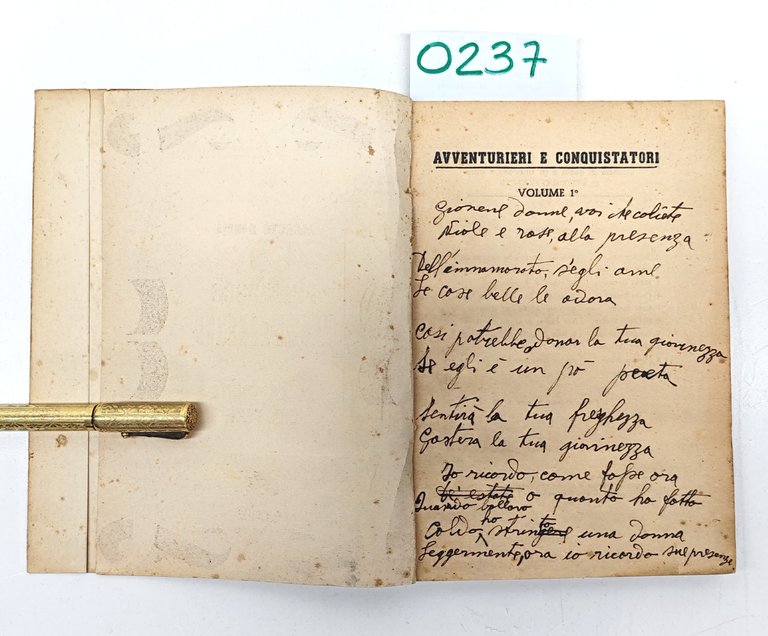 0237
AVVENTURIERI E CONQUISTATORI
VOLUME 1º
Giovene donne, voi che coliete
Viole e rose, alla presenza
Dell'innamorato, s'egli ame
Le cose belle le adora
Così potrebbe donar la tua giovinezza
Se egli è un pò poeta
Sentirà la tua freghezza
Gostera la tua giovinezza
Io ricordo, come fosse ora
o quanto ha fatto
Quando
Caldo, ho strinto una donna
Leggermente, ora io ricordo sue presenze